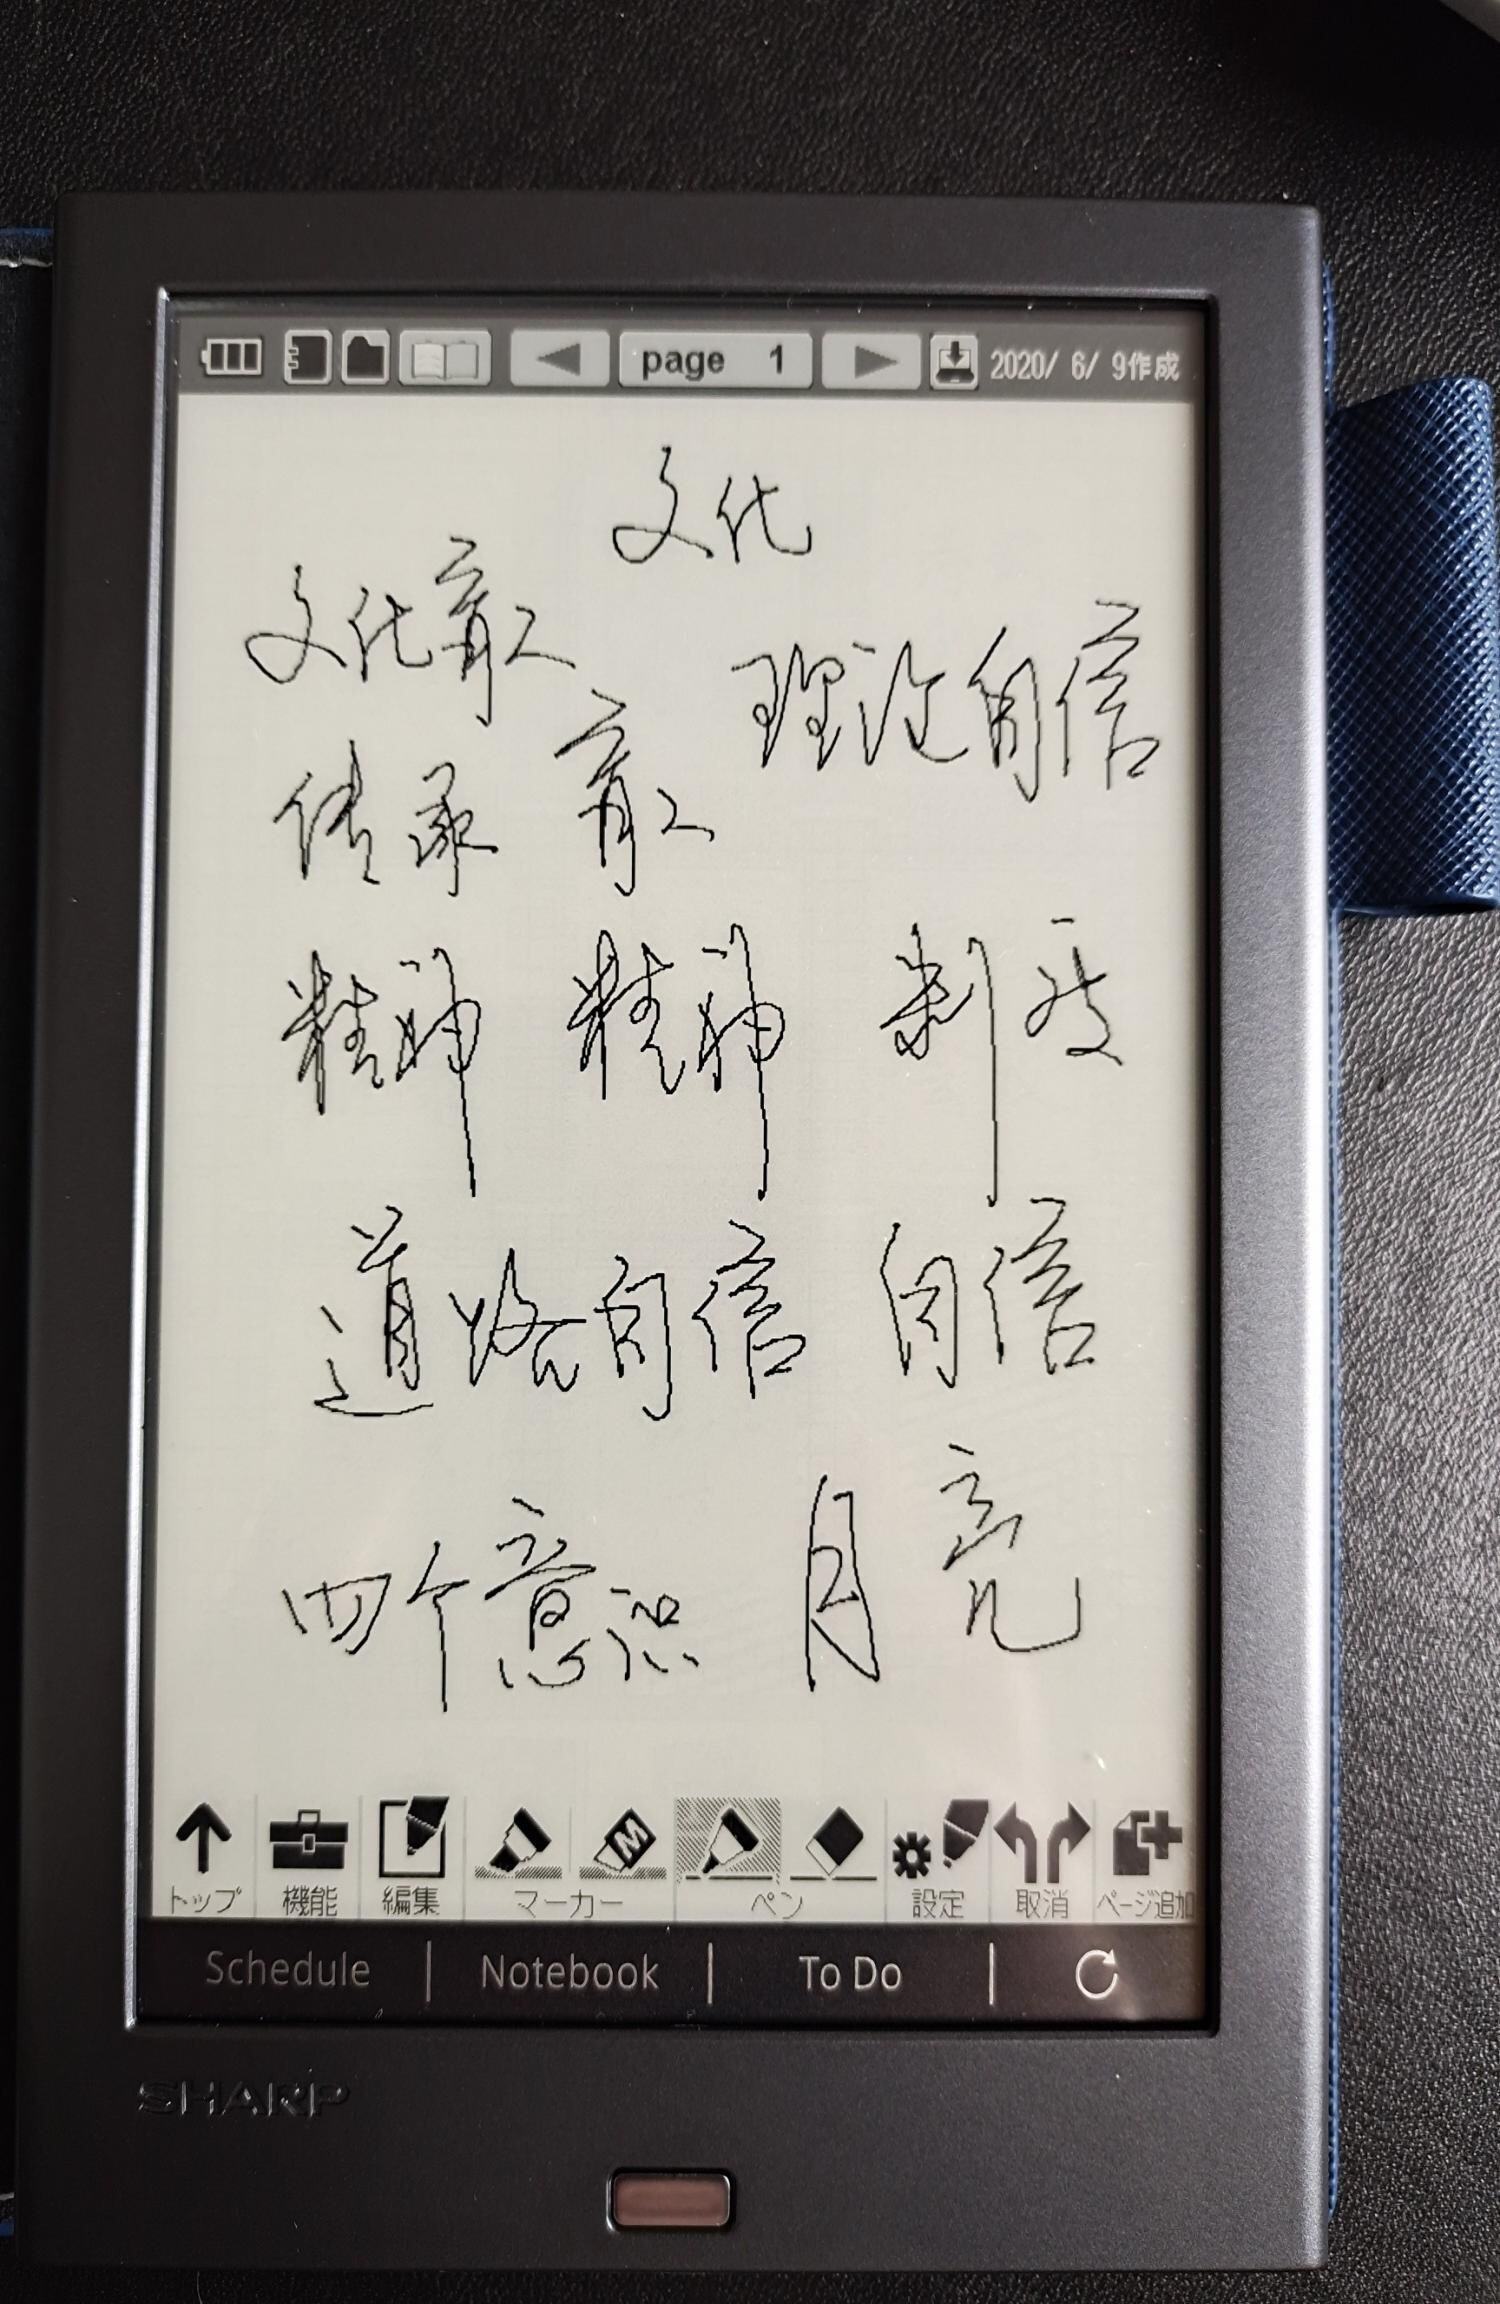 page 1 2020/ 6/ 9作成
文化
文化育人
理论自信
传承 育人
精神 精神 制度
道路自信 自信
四个意识 月亮
トップ 機能 編集 マーカー ペン 設定 取消 ページ追加
Schedule Notebook To Do
SHARP